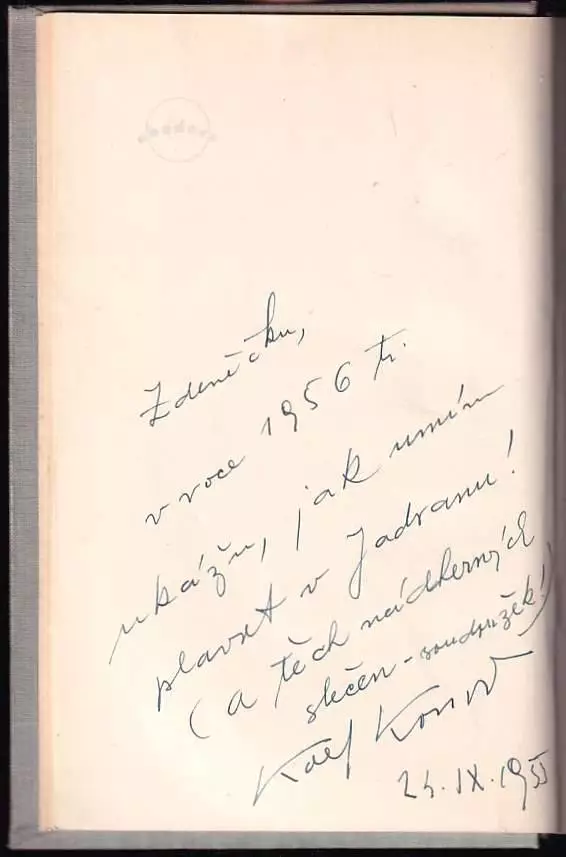 Zdeněčku,
v roce 1956 ti
ukážu, jak umím
plavat v Jadranu!
(a těch nádherných
slečen - soudružek!)
24. IX. 1955